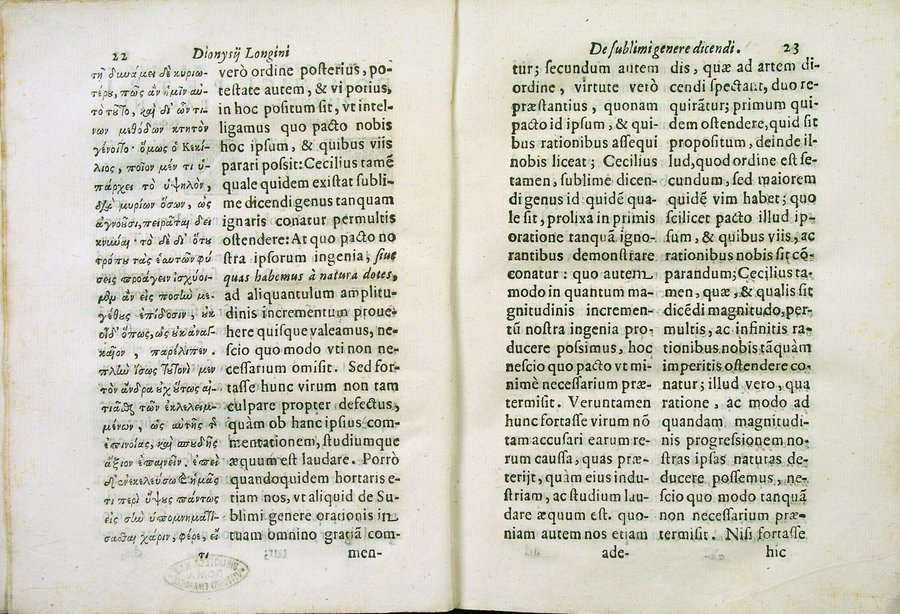 22 Dionysij Longini
τῇ δυνάμει δὲ κυριω-
τέρου, πῶς ἂν ἡμῖν αὐ-
τὸ τοῦτο, καὶ δι' ὧν τι-
νων μεθόδων κτητὸν
γένοιτο· ὅμως ὁ Κεκί-
λιος, ποῖον μέν τι ὑ-
πάρχει τὸ ὑψηλόν,
διὰ μυρίων ὅσων, ὡς
ἀγνοοῦσι, πειρᾶται δει
κνύναι· τὸ δὲ δι' ὅτου
τρόπου τὰς ἑαυτῶν φύ
σεις προάγειν ἰσχύοι-
μεν ἂν εἰς ποσὴν με-
γέθους ἐπίδοσιν, οὐκ
οἶδ' ὅπως, ὡς οὐκ ἀναγ-
καῖον, παρέλιπεν.
πλὴν ἴσως τουτονὶ μὲν
τὸν ἄνδρα οὐχ οὕτως αἰ-
τιᾶσθαι τῶν ἐκλελειμ-
μένων, ὡς αὐτῆς τῆς
ἐπινοίας, καὶ σπουδῆς
ἄξιον ἐπαινεῖν. ἐπεὶ
δ' ἐνεκελεύσω καὶ ἡμᾶς
τι περὶ ὕψους πάντως
εἰς σὴν ὑπομνηματί-
σασθαι χάριν, φέρε, εἴ
τι
verò ordine posterius, po-
testate autem, & vi potius,
in hoc positum sit, vt intel-
ligamus quo pacto nobis
hoc ipsum, & quibus viis
parari possit: Cecilius tamẽ
quale quidem existat subli-
me dicendi genus tanquam
ignaris conatur permultis
ostendere: At quo pacto no
stra ipsorum ingenia, siue
quas habemus à natura dotes,
ad aliquantulum amplitu-
dinis incrementum proue-
here quisque valeamus, ne-
scio quo modo vti non ne-
cessarium omisit. Sed for-
tasse hunc virum non tam
culpare propter defectus,
quàm ob hanc ipsius com-
mentationem, studiumque
æquum est laudare. Porrò
quandoquidem hortaris e-
tiam nos, vt aliquid de Su-
blimi genere orationis in
tuam omnino gratiã com-
men-
De sublimi genere dicendi. 23
tur; secundum autem
ordine, virtute verò
præstantius, quonam
pacto id ipsum, & qui-
bus rationibus assequi
nobis liceat; Cecilius
tamen, sublime dicen-
di genus id quidẽ qua-
le sit, prolixa in primis
oratione tanquã igno-
rantibus demonstrare
conatur: quo autem
modo in quantum ma-
gnitudinis incremen-
tũ nostra ingenia pro-
ducere possimus, hoc
nescio quo pacto vt mi-
nimè necessarium præ-
termisit. Veruntamen
hunc fortasse virum nõ
tam accusari earum re-
rum caussa, quas præ-
terijt, quàm eius indu-
striam, ac studium lau-
dare æquum est. quo-
niam autem nos etiam
ade-
dis, quæ ad artem di-
cendi spectant, duo re-
quirãtur; primum qui-
dem ostendere, quid sit
propositum, deinde il-
lud, quod ordine est se-
cundum, sed maiorem
quidẽ vim habet; quo
scilicet pacto illud ip-
sum, & quibus viis, ac
rationibus nobis sit cõ-
parandum; Cecilius ta-
men, quæ, & qualis sit
dicẽdi magnitudo, per-
multis, ac infinitis ra-
tionibus nobis tãquàm
imperitis ostendere co-
natur; illud vero, qua
ratione, ac modo ad
quandam magnitudi-
nis progressionem no-
stras ipsas naturas de-
ducere possemus, ne-
scio quo modo tanquã
non necessarium præ-
termisit. Nisi fortasse
hic